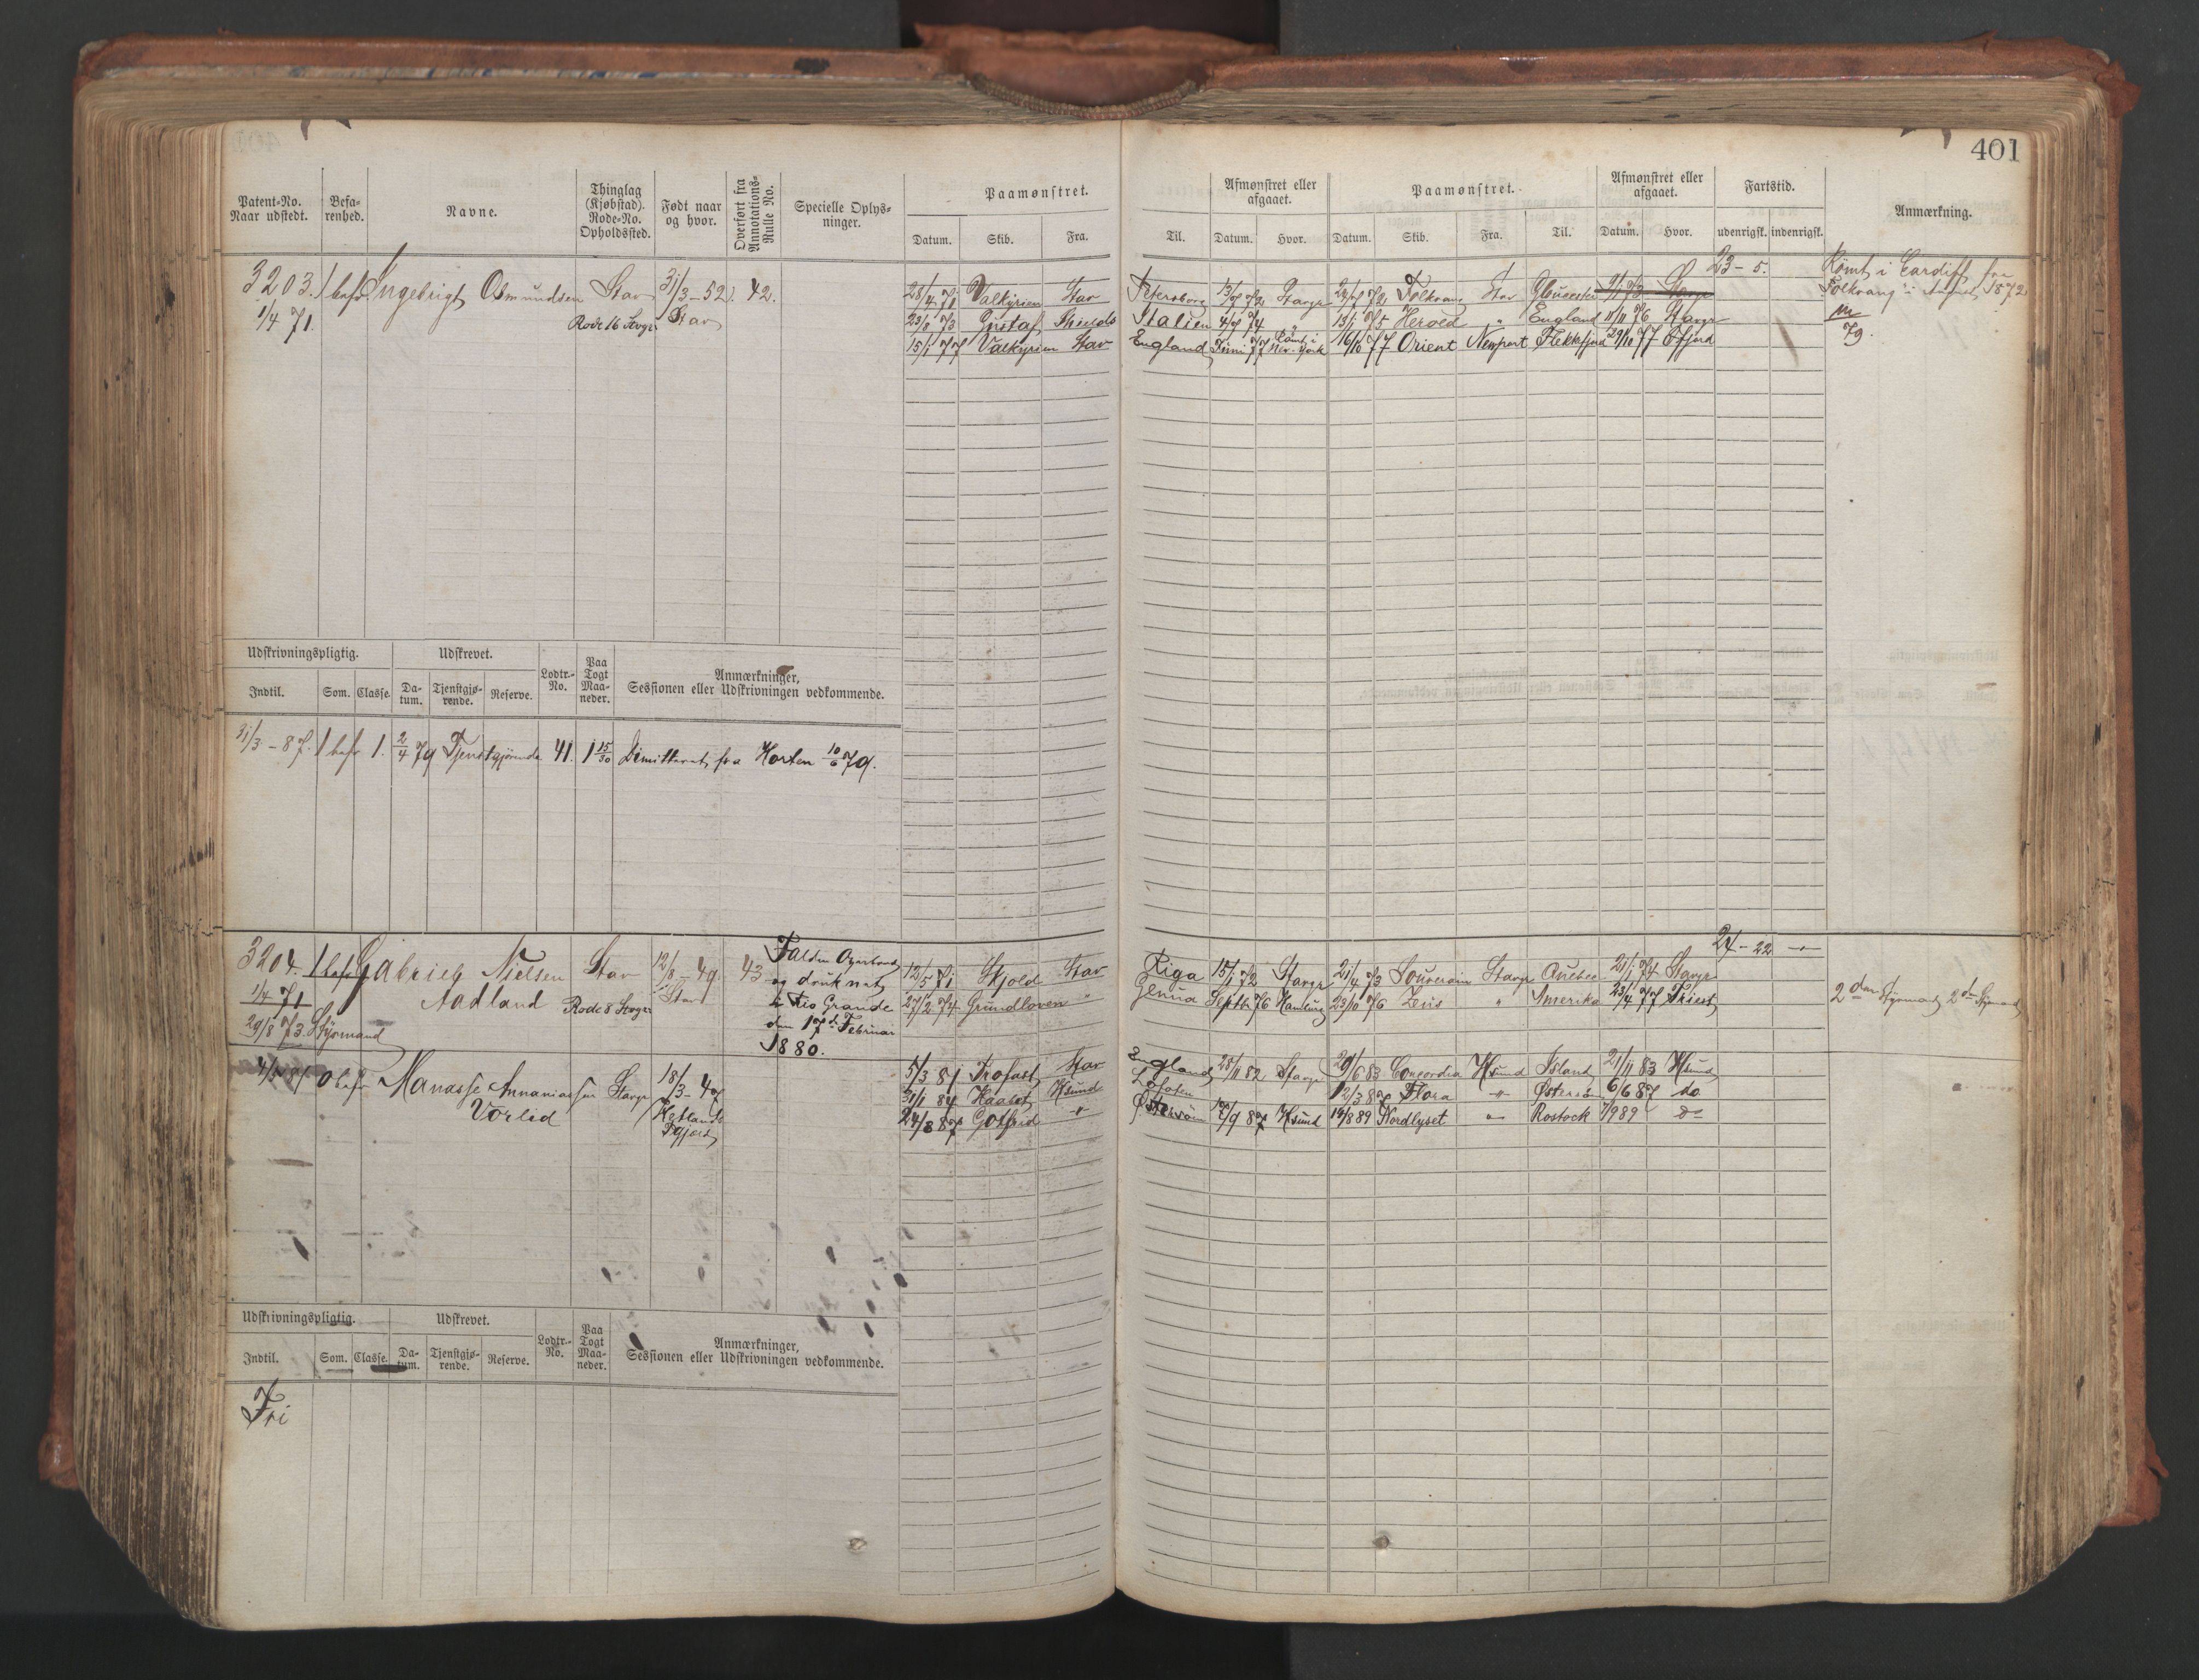 401
Patent-No. Naar udstedt. Befa-renhed. Navne. Thinglag (Kjøbstad). Rode-No. Opholdssted. Født naar og hvor. Overført fra Annotations-Rulle No. Specielle Oplys-ninger. Paamønstret. Afmønstret eller afgaaet. Paamønstret. Afmønstret eller afgaaet. Fartstid. Anmærkning.
Datum. Skib. Fra. Til. Datum. Hvor. Datum. Skib. Fra. Til. Datum. Hvor. udenrigsk. indenrigsk.
3203. 1 bef. Ingebrigt Osmundsen Stav 31/3-52 42.
1/4 71. Rode 16 Stvgr Stav
23-5.
28/4 71 Valkyrien Stav Petersborg Stavgr Folkvang Stav Gloucester
23/8 73 Gustaf Shields Italien 4/9 74 " 13/1 75 Herold " England 11/11 76 Stavgr
15/1 77 Valkyrien Stav England Juni 77 Rømt i New-York 16/10 77 Orient Newport Flekkefjord 29/10 77 Ofjord
Rømt i Cardiff fra
Folkvang i August 1872
79.
Udskrivningspligtig. Udskrevet. Lodtr.-No. Paa Togt Maa-neder. Anmærkninger, Sessionen eller Udskrivningen vedkommende.
Indtil. Som. Classe. Da-tum. Tjenstgjø-rende. Reserve.
31/3-87. 1 bef 1. 2/4 79 Tjenstgjørende 41. 1 15/30 Dimitteret fra Horten 10/6 79.
3204. 1 bef Gabriel Nielsen Stav 12/8-49. 43 Falden Overbord
1/4 71 Aadland Rode 8 Stvgr Stav og druknet
29/8 73. Styrmand i Rio Grande
den 17de Februar
1880.
24-22
12/5 71 Skjold Stav Riga 15/1 72 Stavgr 21/4 73 Souverain Stavgr Quebec 21/1 74 Stavgr
27/2 74 Grundloven " Genua Septbr 76 Hamburg 23/10 76 Zeus " Amerika 23/4 77 Triest
2den Styrmand 2den Styrmand
0 bef Manasse Annaniassen Stavgr 18/3-47
Vorlid Hetland
5/3 81 Trofast Stav England 28/11 82 Stavgr 29/6 83 Concordia Hsund Island 21/11 83 Hsund
31/1 84 Haabet Hsund Lofoten 12/3 87 Flora " Østersø 6/6 87 do
24/8 87 Gotfrid " 87 Hsund 14/8 89 Nordlyset " Rostock 7/9 89 Do
Udskrivningspligtig. Udskrevet. Lodtr.-No. Paa Togt Maa-neder. Anmærkninger, Sessionen eller Udskrivningen vedkommende.
Indtil. Som. Classe. Da-tum. Tjenstgjø-rende. Reserve.
Fri